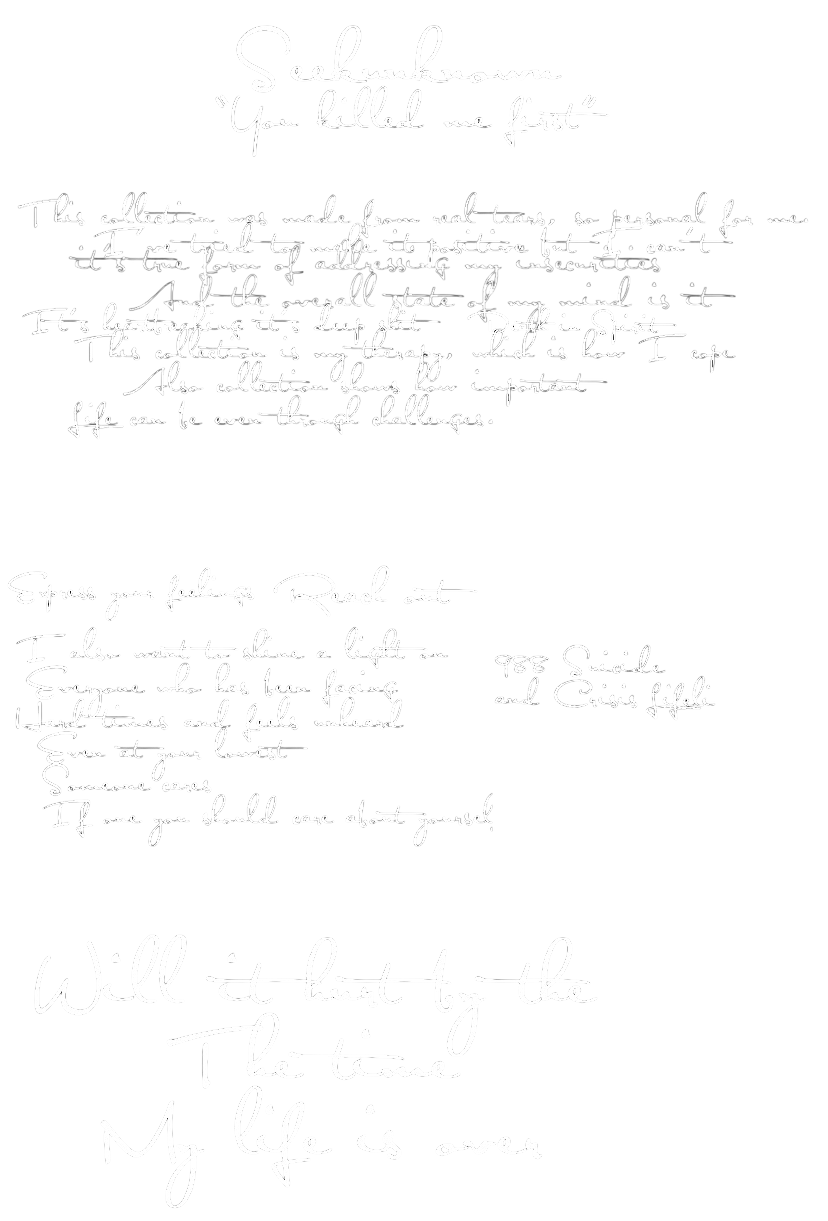 "You killed me first"
This collection was made from real tears, so personal for me
I've tried to make it positive but I can't
it's true form of addressing my insecurities
And the overall state of my mind is it
It's heartbreaking it's deep shit
This collection is my therapy, which is how I cope
Also collection shows how important
life can be even through challenges.
Express your feelings Reach out
I also want to shine a light on
Everyone who has been facing
Hard times and feels unheard
Even at your lowest
Someone cares
If one you should care about yourself
988 Suicide
and Crisis
Will it hurt by the
The time
My life is over